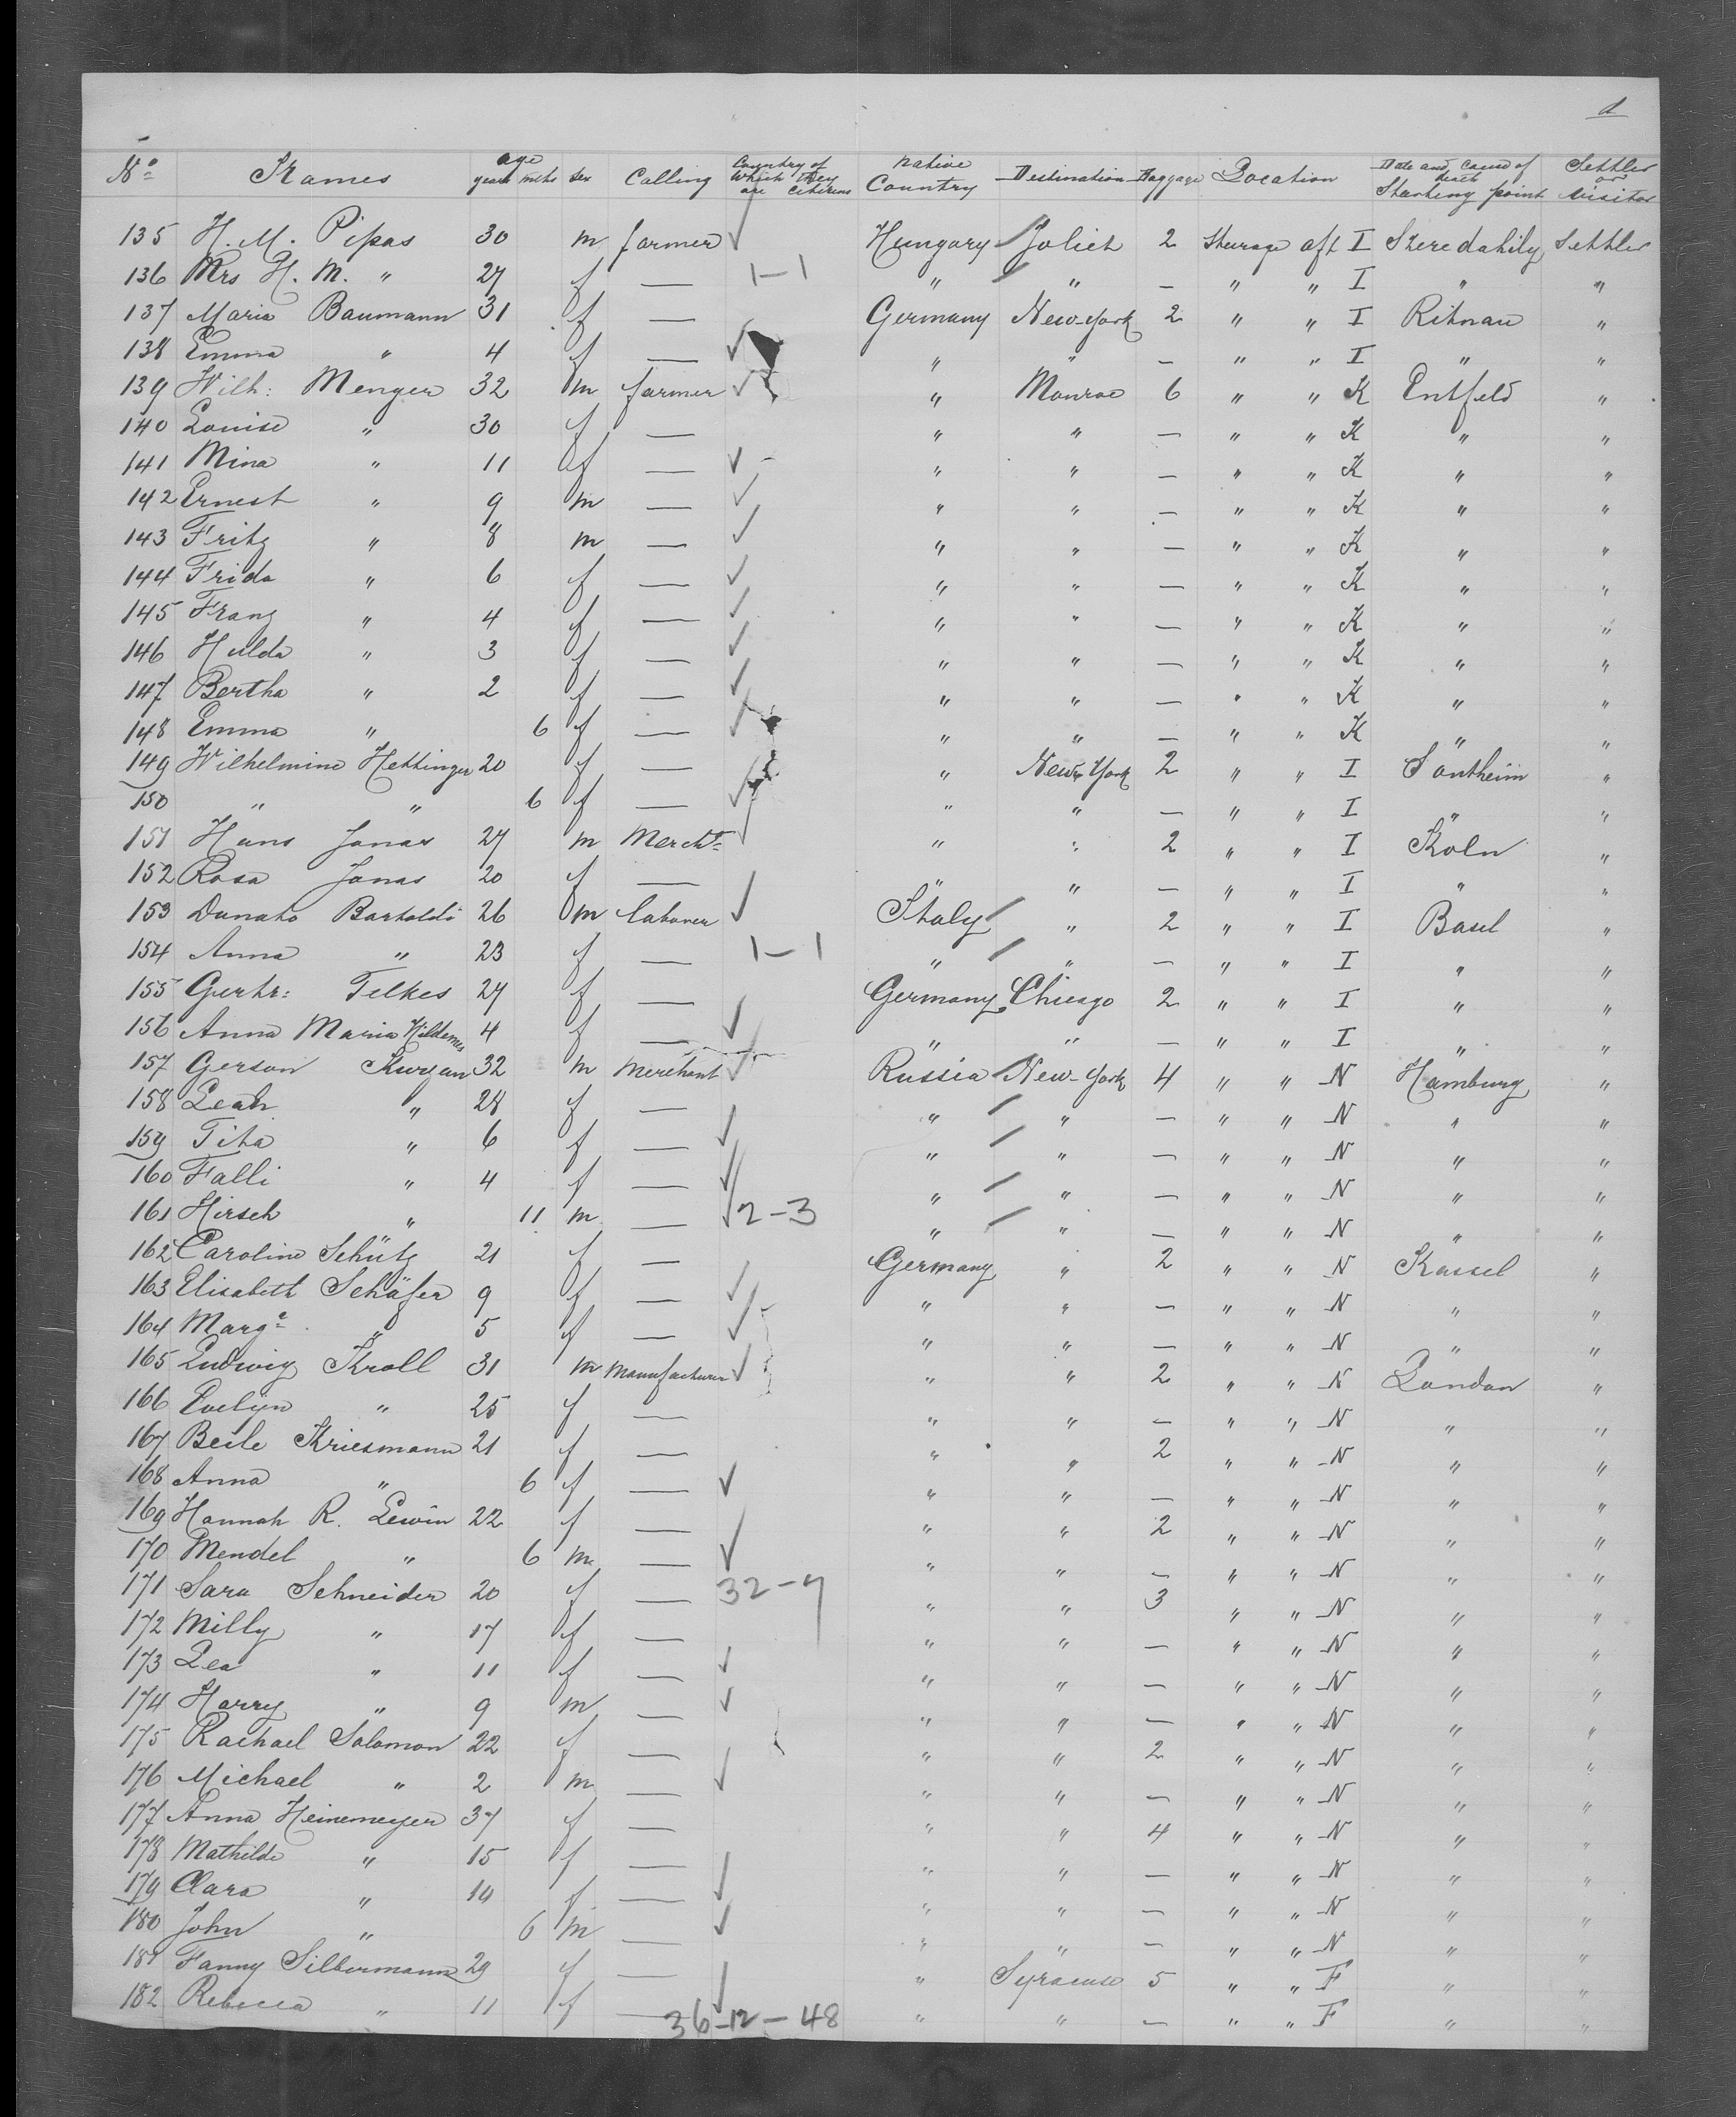 d
No Names age years mths sex Calling Country of Which they are Citizens native Country Destination Baggage Location Date and Cause of death Starting point Settler or Visitor
135 H. M. Pipas 30 m farmer Hungary Joliet 2 Steurage aft I Szeredahily Settler
136 Mrs H. M. " 27 f — 1—1 " " — " " I " "
137 Maria Baumann 31 f — Germany New-York 2 " " I Ritnau "
138 Emma " 4 f — " " — " " I " "
139 Wilh: Menger 32 m farmer " Monroe 6 " " K Entfeld "
140 Louise " 30 f — " " — " " K " "
141 Mina " 11 f — " " — " " K " "
142 Ernest " 9 m — " " — " " K " "
143 Fritz " 8 m — " " — " " K " "
144 Frida " 6 f — " " — " " K " "
145 Franz " 4 f — " " — " " K " "
146 Hulda " 3 f — " " — " " K " "
147 Bertha " 2 f — " " — " " K " "
148 Emma " 6 f — " " — " " K " "
149 Wilhelmine Hettinger 20 f — " New York 2 " " I Sontheim "
150 " " 6 f — " " — " " I " "
151 Hans Jonas 27 m Mercht " " 2 " " I Köln "
152 Rosa Jonas 20 f — " " — " " I " "
153 Donato Bartoldi 26 m labourer Italy " 2 " " I Basel "
154 Anna " 23 f — 1—1 " " — " " I " "
155 Gertr: Telkes 27 f — Germany Chicago 2 " " I " "
156 Anna Maria 4 f — " " — " " I " "
157 Gerson Kurzan 32 m Merchant Russia New-York 4 " " N Hamburg "
158 Leah " 28 f — " " — " " N " "
159 Tita " 6 f — " " — " " N " "
160 Falli " 4 f — " " — " " N " "
161 Hirsch " 11 m — 2-3 " " — " " N " "
162 Caroline Schütz 21 f — Germany " 2 " " N Kassel "
163 Elisabeth Schäfer 9 f — " " — " " N " "
164 Marge " 5 f — " " — " " N " "
165 Ludwig Kroll 31 m Manufacturer " " 2 " " N London "
166 Evelyn " 25 f — " " — " " N " "
167 Beile Kriesmann 21 f — " " 2 " " N " "
168 Anna " 6 f — " " — " " N " "
169 Hannah R. Lewin 22 f — " " 2 " " N " "
170 Mendel " 6 m — " " — " " N " "
171 Sara Schneider 20 f — 32-9 " " 3 " " N " "
172 Milly " 17 f — " " — " " N " "
173 Lea " 11 f — " " — " " N " "
174 Harry " 9 m — " " — " " N " "
175 Rachael Solomon 22 f — " " 2 " " N " "
176 Michael " 2 m — " " — " " N " "
177 Anna Heinemeyer 37 f — " " 4 " " N " "
178 Mathilde " 15 f — " " — " " N " "
179 Clara " 10 f — " " — " " N " "
180 John " 6 m — " " — " " N " "
181 Fanny Silbermann 29 f — " Syracuse 5 " " F " "
182 Rebecca " 11 f — " " — " " F " "
36-12-48